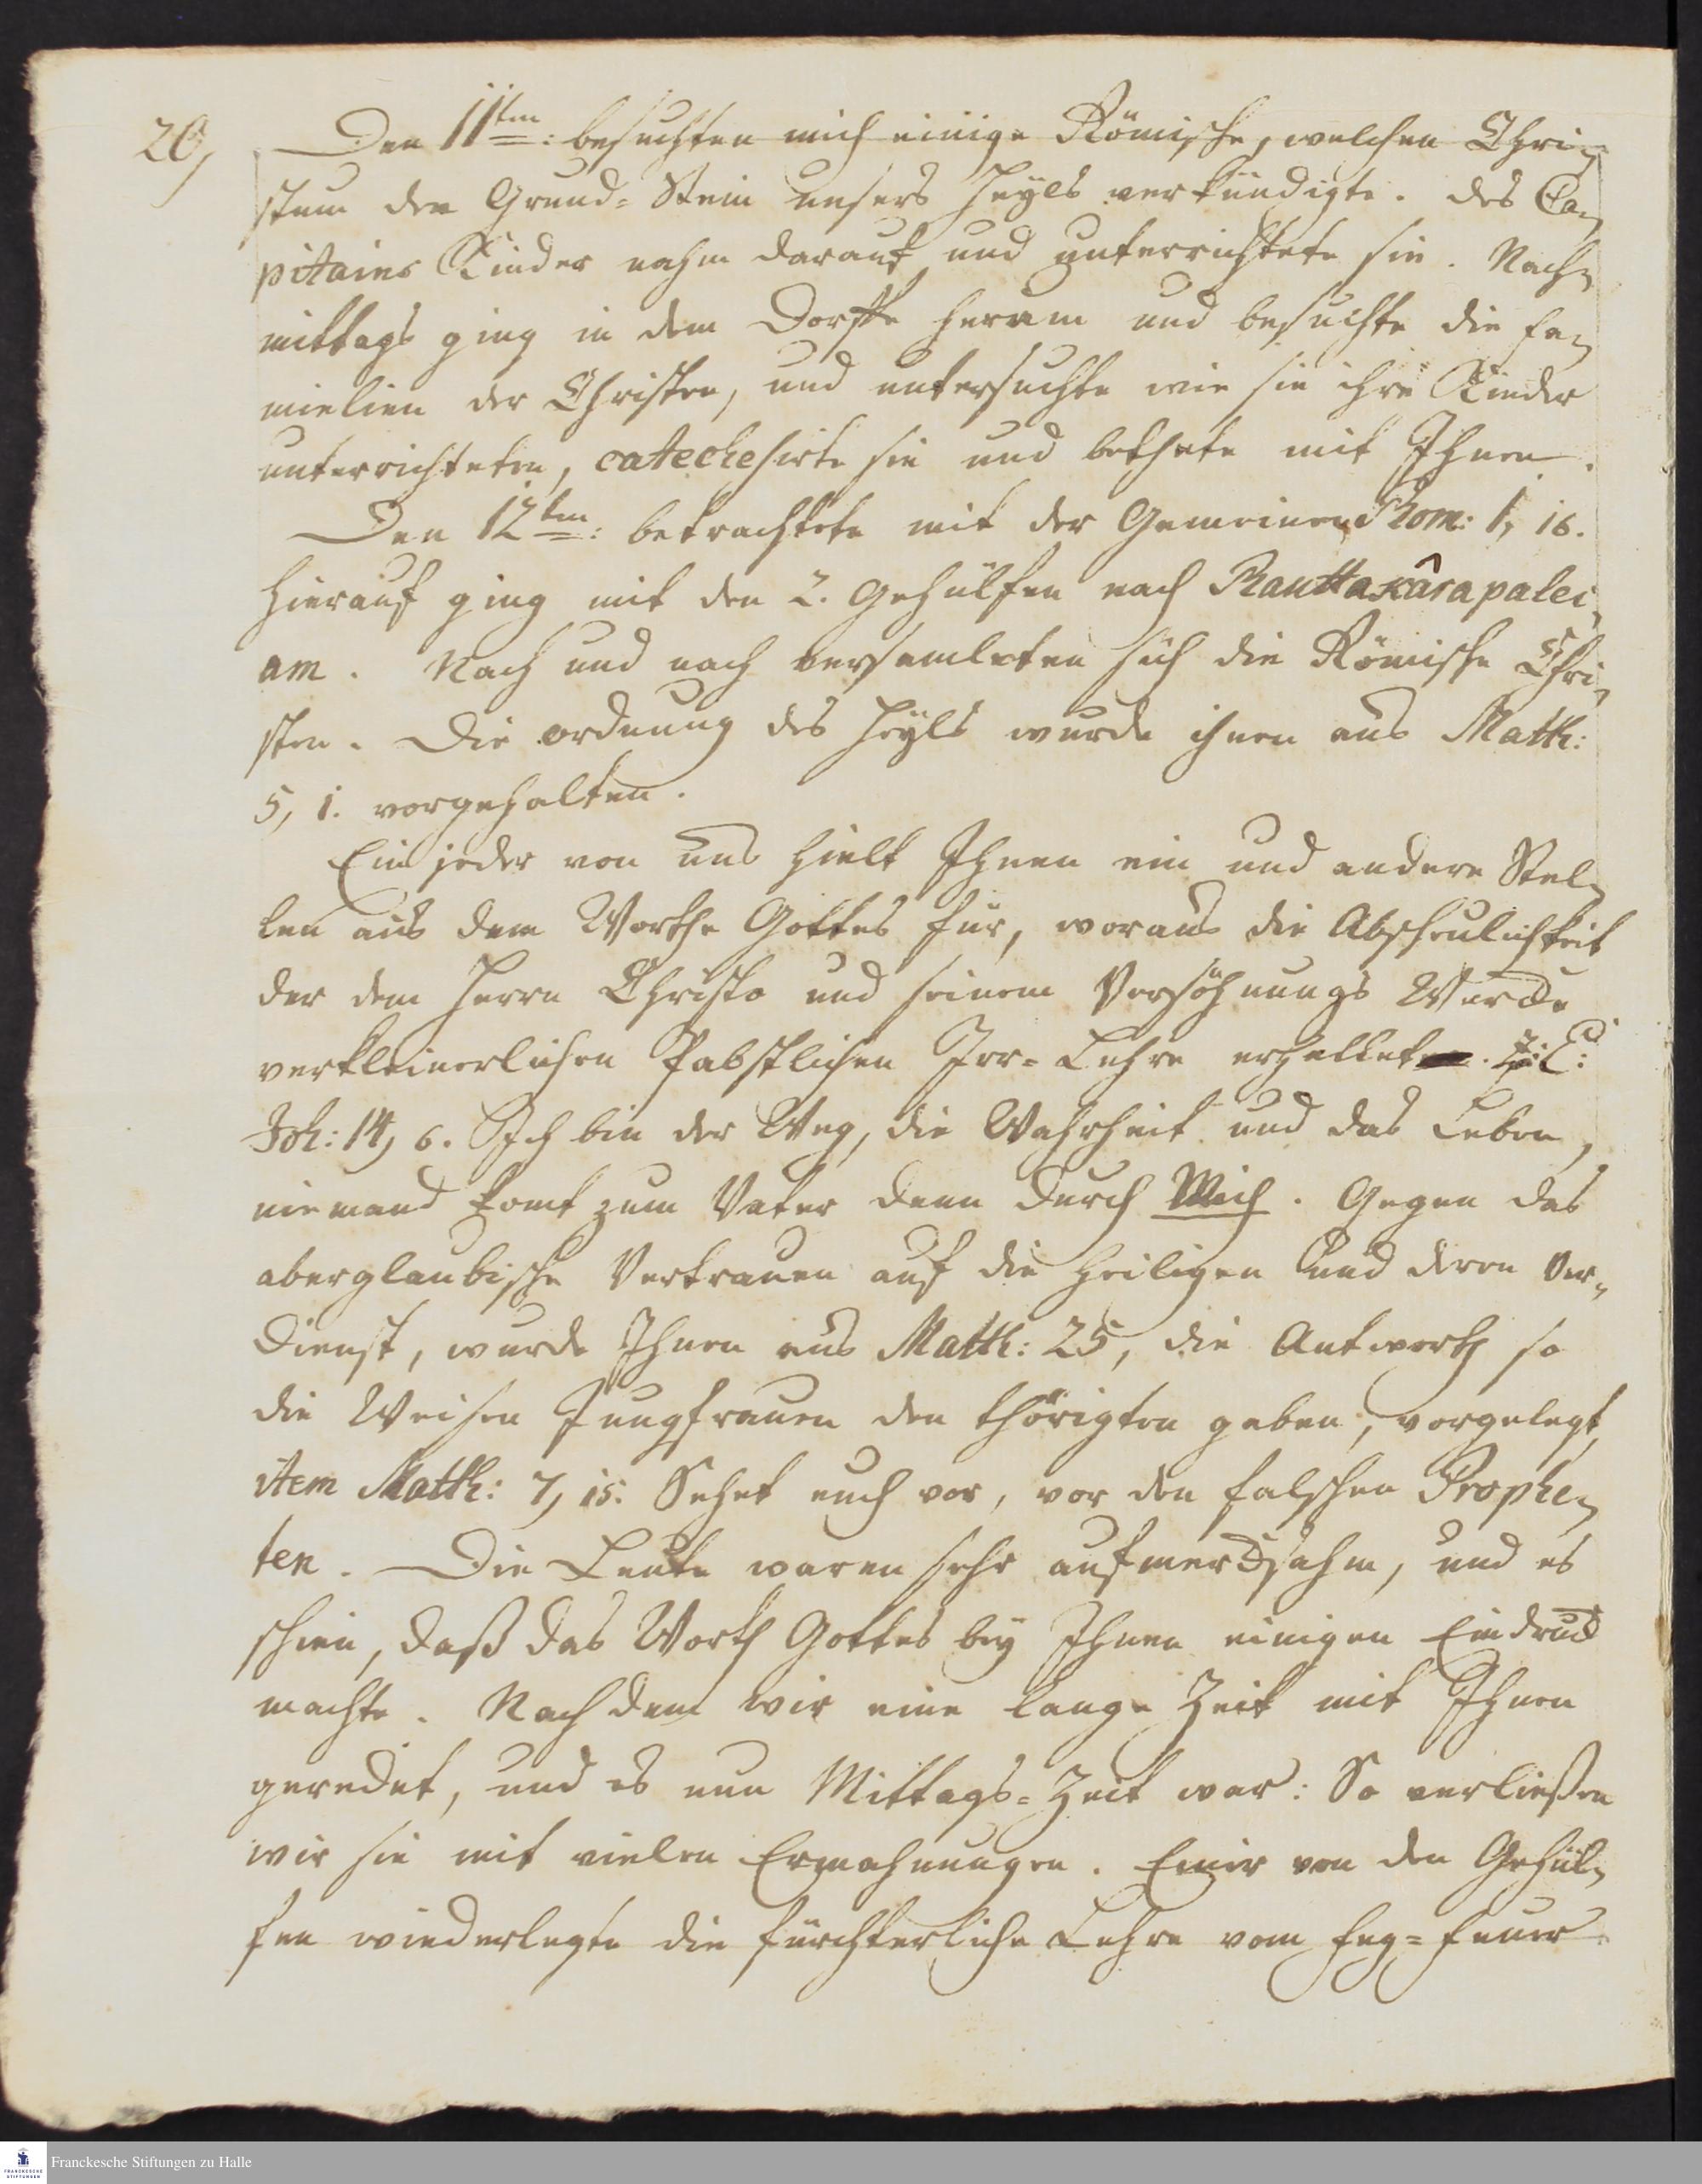 20,
Den 11ten: besuchten mich einige Römische, welchen Chri-
stum den Grund-Stein unsers Heyls verkündigte. Des Ca-
pitains Kinder nahm darauf und unterrichtete sie. Nach-
mittags ging in dem Dorffe herum und besuchte die Fa-
mielien der Christen, und untersuchte wie sie ihre Kinder
unterrichteten, catechesirte sie und bethete mit Ihnen.
Den 12ten: betrachtete mit der Gemeinen Rom: 1, 16.
Hierauf ging mit den 2. Gehülfen nach Rauttakârapalei-
am. Nach und nach versamleten sich die Römische Chri-
sten. Die Ordnung des Heyls wurde ihnen aus Matth:
5, 1. vorgehalten.
Ein jeder von uns hielt Ihnen ein und andere Stel-
len aus dem Worthe Gottes für, woraus die Abscheulichkeit
der dem Herrn Christo und seinem Versöhnungs Wercke
verkleinerlichen Pabstlichen Irr-Lehre erhellet. Z: E:
Joh: 14, 6. Ich bin der Weg, die Wahrheit und das Leben,
niemand komt zum Vater denn durch Mich. Gegen das
aberglaubische Vertrauen auf die Heiligen und deren Ver-
dienst, wurde Ihnen aus Matth: 25, die Antworth so
die Weisen Jungfrauen den thörigten gaben, vorgelegt,
item Matth: 7, 15. Sehet euch vor, vor den falschen Prophe-
ten. Die Leute waren sehr aufmercksahm, und es
schien, daß das Worth Gottes bey Ihnen einigen Eindruck
machte. Nach dem wir eine lange Zeit mit Ihnen
geredet, und es nun Mittags-Zeit war: So verließen
wir sie mit vielen Ermahnungen. Einer von den Gehül-
fen wiederlegte die fürchterliche Lehre vom Feg-Feuer
Franckesche Stiftungen zu Halle
FRANCKESCHE
STIFTUNGEN